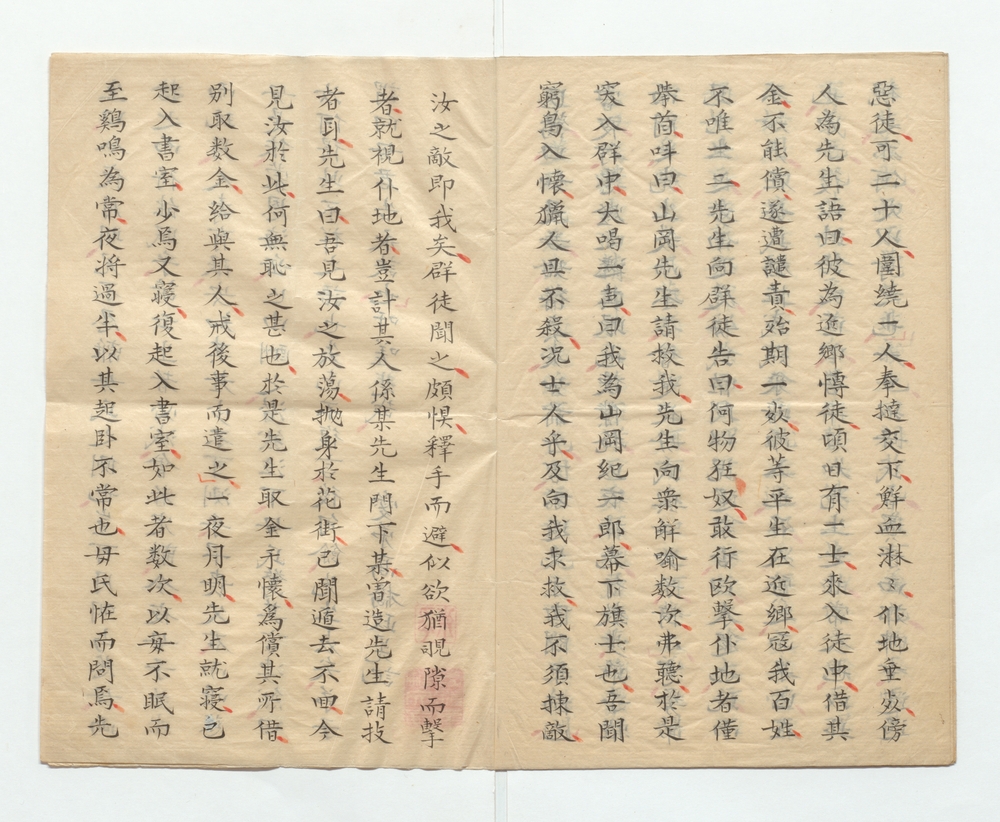 惡徒可二十人圍繞一人奉撻交下鮮血淋〻仆地垂死傍
人為先生語曰彼為近鄉慱徒頃日有一士來入徒中借其
金不能償遂遭譴責殆期一死彼等平生在近鄉寇我百姓
不唯一二先生向群徒告曰何物狂奴敢行欧擊仆地者僅
擧首呌曰山岡先生請救我先生向衆解喻数次弗聽於是
突入群中大喝一声曰我為山岡紀一郎幕下旗士也吾聞
窮鳥入懷獵人且不殺况士人乎及向我求救我不須揀敵
汝之敵即我矣群徒聞之頗惧釋手而避似欲猶覗隙而擊
者就視仆地者豈計其人係某先生門下某曽造先生請技
者耳先生曰吾見汝之放蕩抛身於花街已聞遁去不面今
見汝於此何無恥之甚也於是先生取金于懷爲償其所借
別取数金給與其人戒後事而遣之一夜月明先生就寢已
起入書室少焉又寢復起入書室如此者数次以每不眠而
至鷄鳴為常夜将過半以其起卧不常也母氏恠而問焉先